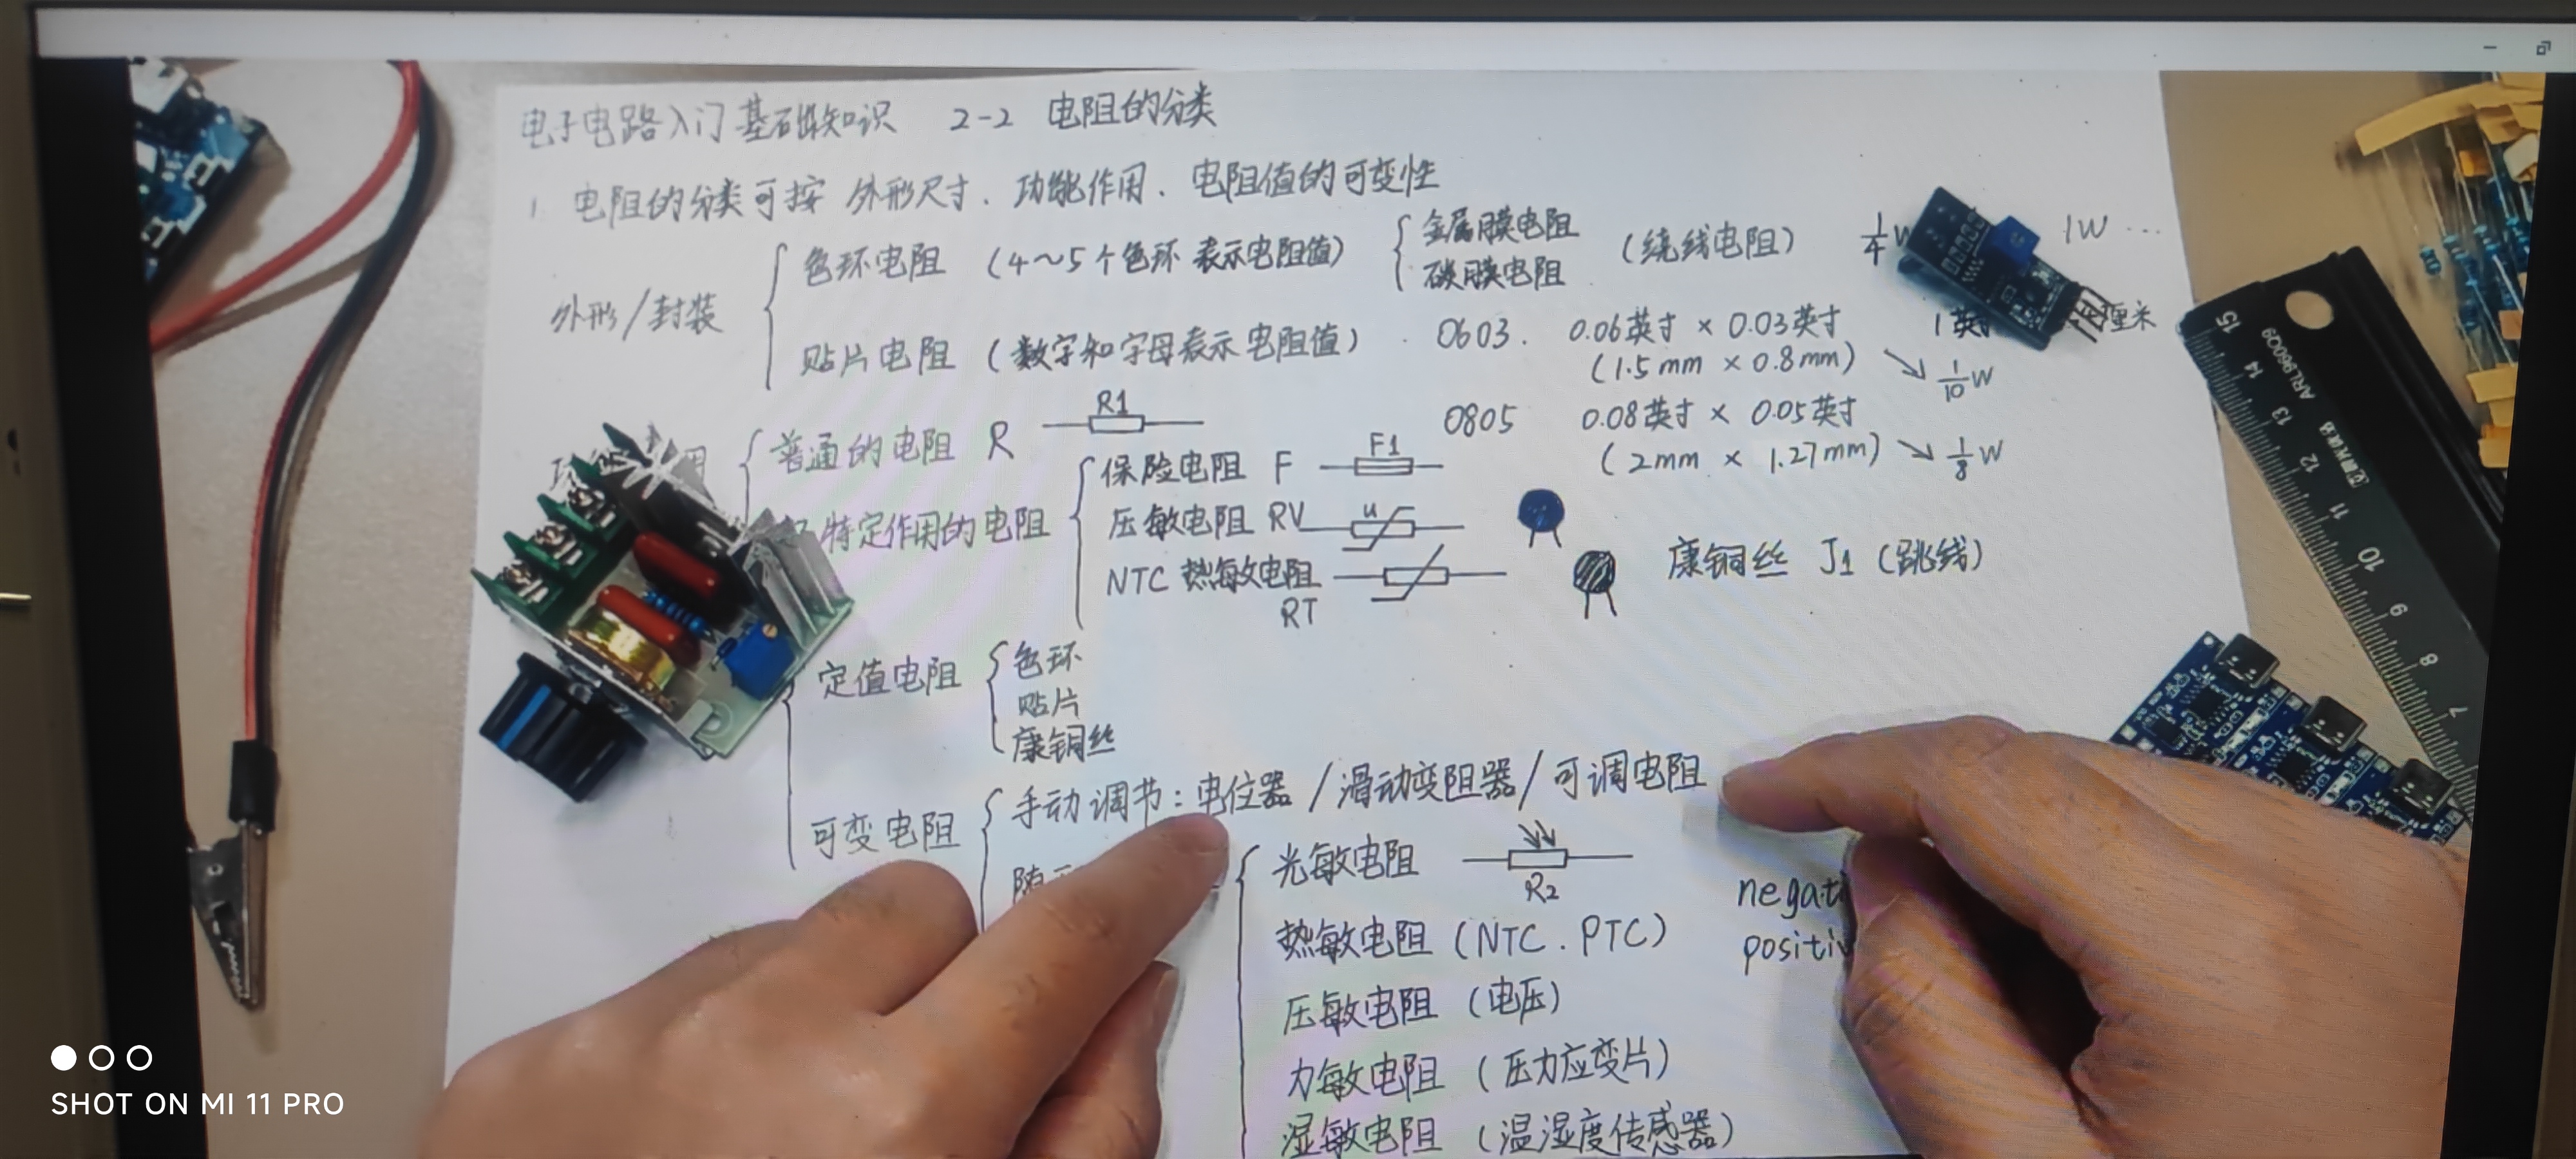 电子电路入门基础知识 2-2 电阻的分类
1 电阻的分类可按 外形尺寸、功能作用、电阻值的可变性
外形/封装
色环电阻 (4～5个色环 表示电阻值) 金属膜电阻 (绕线电阻) 1/4W 1W ...
碳膜电阻
贴片电阻 (数字和字母表示电阻值) 0603. 0.06英寸 × 0.03英寸 1英 厘米
(1.5mm × 0.8mm) 1/10W
R1
普通的电阻 R
0805 0.08英寸 × 0.05英寸
(2mm × 1.27mm) 1/8W
特定作用的电阻
保险电阻 F F1
压敏电阻 RV u
NTC 热敏电阻
RT
康铜丝 J1 (跳线)
定值电阻
色环
贴片
康铜丝
可变电阻
手动调节：电位器/滑动变阻器/可调电阻
随
光敏电阻 R2
热敏电阻 (NTC. PTC)
negati
positiv
压敏电阻 (电压)
力敏电阻 (压力应变片)
湿敏电阻 (温湿度传感器)
15 14 13 12 11 10 9 8 7
ARL96009
SHOT ON MI 11 PRO